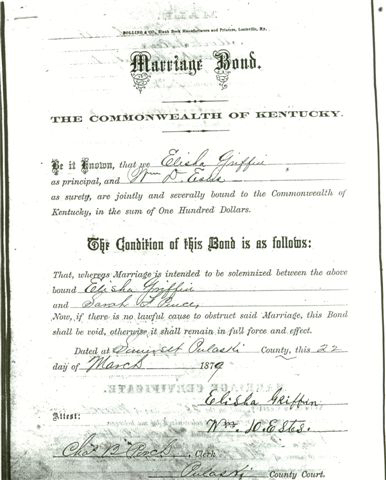 ROLLING & CO., Blank Book Manufacturers and Printers, Louisville, Ky.
Marriage Bond.
THE COMMONWEALTH OF KENTUCKY.
Be it Known, that we Elisha Griffin
as principal, and Wm D. Estes
as surety, are jointly and severally bound to the Commonwealth of
Kentucky, in the sum of One Hundred Dollars.
The Condition of this Bond is as follows:
That, whereas Marriage is intended to be solemnized between the above
bound Elisha Griffin
and Sarah
Now, if there is no lawful cause to obstruct said Marriage, this Bond
shall be void, otherwise it shall remain in full force and effect.
Dated at Somerset Pulaski County, this 22
day of March 1879
Elisha Griffin
Attest: Wm. D. Estes.
Chas B , Clerk
Pulaski County Court.